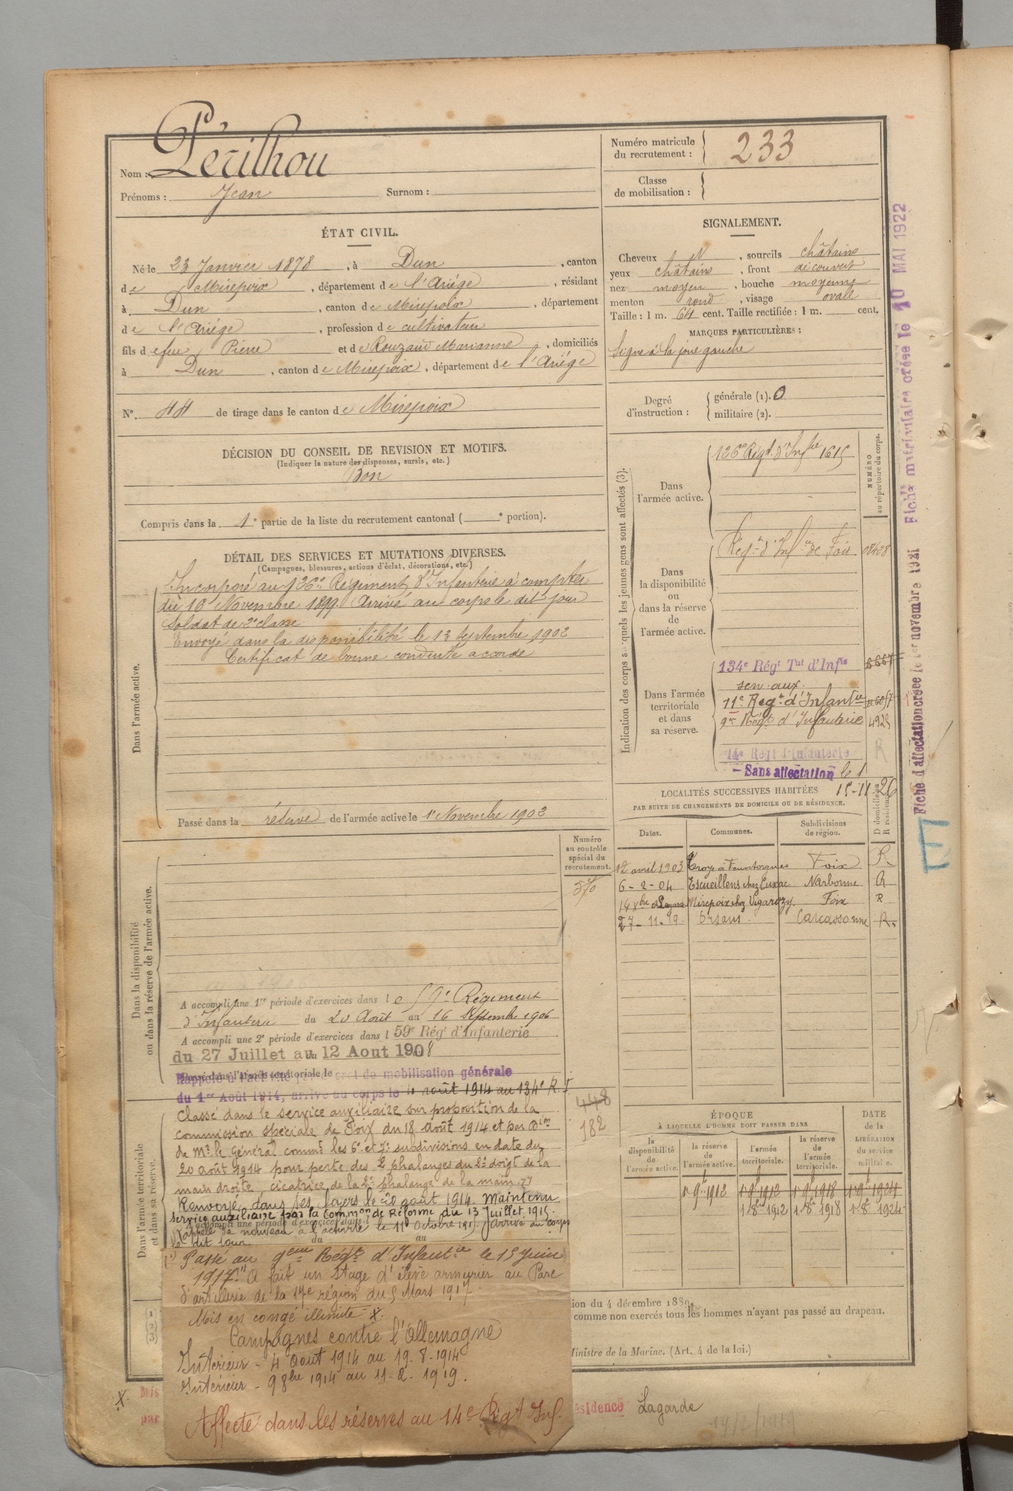 Nom : Périlhou
Prénoms : Jean Surnom :
Numéro matricule du recrutement : 233
Classe de mobilisation :
ÉTAT CIVIL.
Né le 23 Janvier 1878, à Dun, canton
de Mirepoix, département de l'Ariége, résidant
à Dun, canton de Mirepoix, département
de l'Ariége, profession de cultivateur
fils de feu Pierre et de Rouzaud Marianne, domiciliés
à Dun, canton de Mirepoix, département de l'Ariége
N° 44 de tirage dans le canton de Mirepoix
SIGNALEMENT.
Cheveux N, sourcils châtains
yeux châtains, front découvert
nez moyen, bouche moyenne
menton rond, visage ovale
Taille : 1 m. 64 cent. Taille rectifiée : 1 m. cent.
MARQUES PARTICULIÈRES :
Signe à la joue gauche
Degré d'instruction : générale (1). 0
militaire (2).
DÉCISION DU CONSEIL DE REVISION ET MOTIFS.
(Indiquer la nature des dispenses, sursis, etc.)
Bon
Compris dans la 1e partie de la liste du recrutement cantonal ( e portion).
DÉTAIL DES SERVICES ET MUTATIONS DIVERSES.
(Campagnes, blessures, actions d'éclat, décorations, etc.)
Dans l'armée active.
Incorporé au 126e Régiment d'Infanterie à compter
du 16 Novembre 1899. Arrivé au corps le dit jour
Soldat de 2e classe
Envoyé dans la disponibilité le 13 Septembre 1902
Certificat de bonne conduite accordé
Passé dans la réserve de l'armée active le 1er Novembre 1902
Indication des corps auxquels les jeunes gens sont affectés (3).
NUMÉRO au répertoire du corps.
Dans l'armée active. 126e Régt d'Infrie 1615
Dans la disponibilité ou dans la réserve de l'armée active. Régt d'Inf de Foix
Dans l'armée territoriale et dans sa réserve.
134e Régt Tal d'Infie
serv. aux.
11e Régt d'Infantie
9e Régt d'Infanterie
14e Régt d'Infanterie
- Sans affectation le 1
15-11-26
LOCALITÉS SUCCESSIVES HABITÉES
PAR SUITE DE CHANGEMENTS DE DOMICILE OU DE RÉSIDENCE.
Dates. Communes. Subdivisions de région. D domicile R résidence
12 avril 1903 Foix R
6-2-04 Escueillens chez Narbonne R
Mirepoix chez Vigarozy Foix R
27-11-19 Orsans Carcassonne R.
Numéro au contrôle spécial du recrutement.
Dans la disponibilité ou dans la réserve de l'armée active.
A accompli une 1re période d'exercices dans le 59e Régiment
d'Infanterie du 20 Août au 16 Septembre 1906
A accompli une 2e période d'exercices dans l 59e Rég d'Infanterie
du 27 Juillet au 12 Aout 1908
Rappelé à l'activité de mobilisation générale
du 1er Août 1914, arrivé au corps le 4 août 1914 au 134e R.I
Dans l'armée territoriale et dans sa réserve.
Classé dans le service auxiliaire sur proposition de la
commission spéciale de Foix du 18 août 1914 et par
de Mr le Général commt les 6e et 7e subdivisions en date du
20 août 1914 pour perte des 2 phalanges du 2e doigt de la
main droite, cicatrice de la 1e phalange de la main
Renvoyé dans ses foyers le 20 août 1914. Maintenu
service auxiliaire par la Common de Réforme du 13 Juillet 1915.
Rappelé de nouveau à l'activité le 11 Octobre 1915 Arrivé au corps
le dit jour
448
182
Passé au 9eme Régt d'Infantie le 15 Juin
1917. A fait un stage d'élève armurier au Parc
d'artillerie de la 17e région du 5 Mars 1917
Mis en congé illimité X.
Campagnes contre l'Allemagne
Intérieur - 4 Août 1914 au 19-8-1914
Intérieur - 9 8bre 1914 au 11-2-1919.
Affecté dans les réserves au 14e Régt Inf.
ÉPOQUE
À LAQUELLE L'HOMME DOIT PASSER DANS
DATE de la LIBÉRATION du service militaire.
la disponibilité de l'armée active. la réserve de l'armée active. l'armée territoriale. la réserve de l'armée territoriale.
1er 9bre 1902 1er 9bre 1912 1er 9bre 1918 1er 9bre 1924
1er 8bre 1912 1er 8bre 1918 1er 8bre 1924
ion du 4 décembre 188
comme non exercés tous les hommes n'ayant pas passé au drapeau.
Ministre de la Marine. (Art. 4 de la loi.)
ésidence Lagarde
Fiche d'affectation créée le 1er novembre 1921 Fiche matriculaire créée le 10 MAI 1922